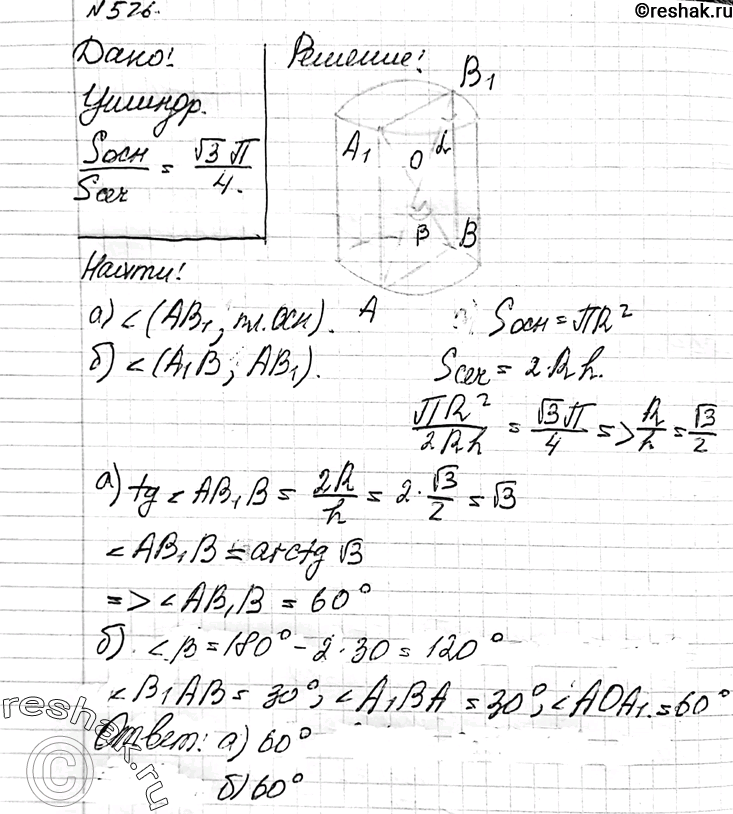 ©reshak.ru
№526.
Дано: Решение:
Цилиндр.
Sосн/Sсеч = √3π/4.
B₁
A₁ O α
β B
A
Найти:
а) ∠(AB₁, пл.осн).
б) ∠(A₁B; AB₁).
Sосн = πR²
Sсеч = 2·Rh.
πR²/2Rh = √3π/4 => R/h = √3/2
а) tg∠AB₁B = 2R/h = 2·√3/2 = √3
∠AB₁B = arctg √3
=> ∠AB₁B = 60°
б). ∠β = 180° - 2·30 = 120°
∠B₁AB = 30°; ∠A₁BA = 30°; ∠AOA₁ = 60°
Ответ: а) 60°
б) 60°
reshak.ru